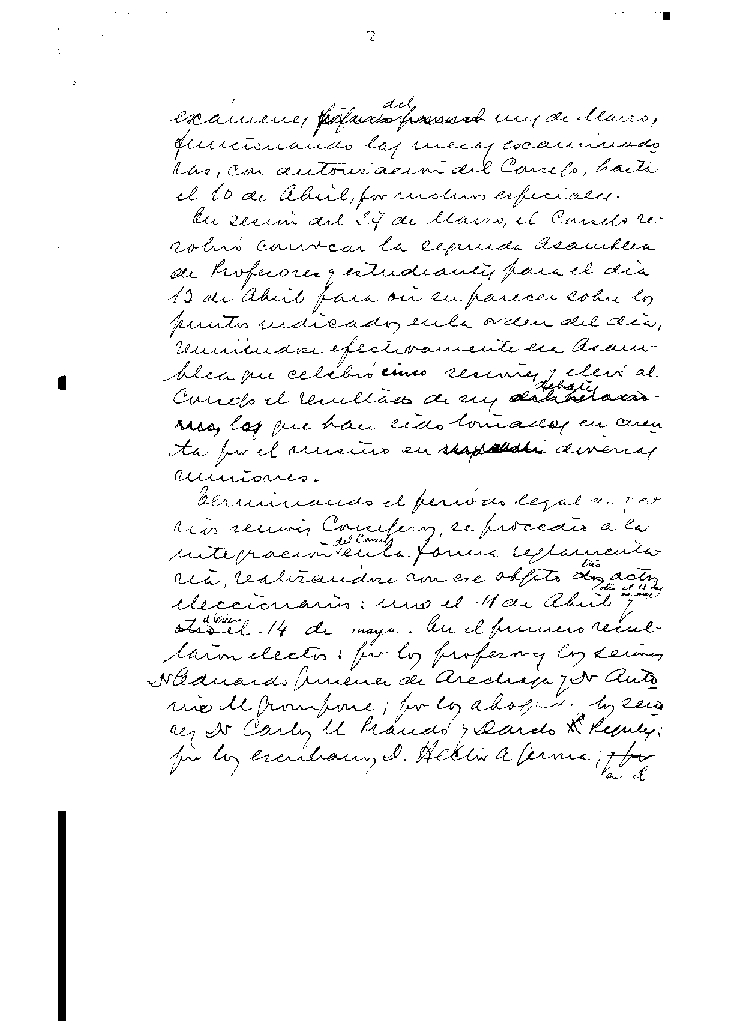 2
exámenes del mes de Marzo,
funcionando las mesas examinado
ras, con autorización del Consejo, hasta
el 10 de Abril, por motivos especiales.
En sesión del 29 de Marzo, el Consejo re-
solvió convocar la segunda Asamblea
de Profesores y estudiantes para el día
13 de Abril para oir su parecer sobre los
puntos indicados en la orden del día,
reuniéndose efectivamente esa Asam-
blea que celebró cinco sesiones y elevó al
Consejo el resultado de sus debates
los que han sido tomados en cuen
ta por el mismo en diversas
reuniones.
Terminando el período legal de va
rios señores Consejeros, se procedió a la
integración del Consejo en la forma reglamenta
ria, realizándose con ese objeto tres actos
eleccionarios: uno el 11 de Abril,
el 14 de mayo. En el primero resul-
taron electos: por los profesores los señores
Dr Eduardo Jimenez de Aréchaga y Dr Anto
nio M Grompone; por los abogados los seño
res Dr Carlos M Prando y Dardo Regules;
por los escribanos D. Héctor A Gerona;